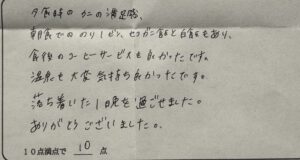 夕食時のカニの満足感、
朝食でののり1ビン、セカ食と白食もあり、
食後のコーヒーサービスも良かったです。
温泉も大変気持ち良かったです。
落ち着いた1晩を過ごせました。
ありがとうございました。
10点満点で 10 点